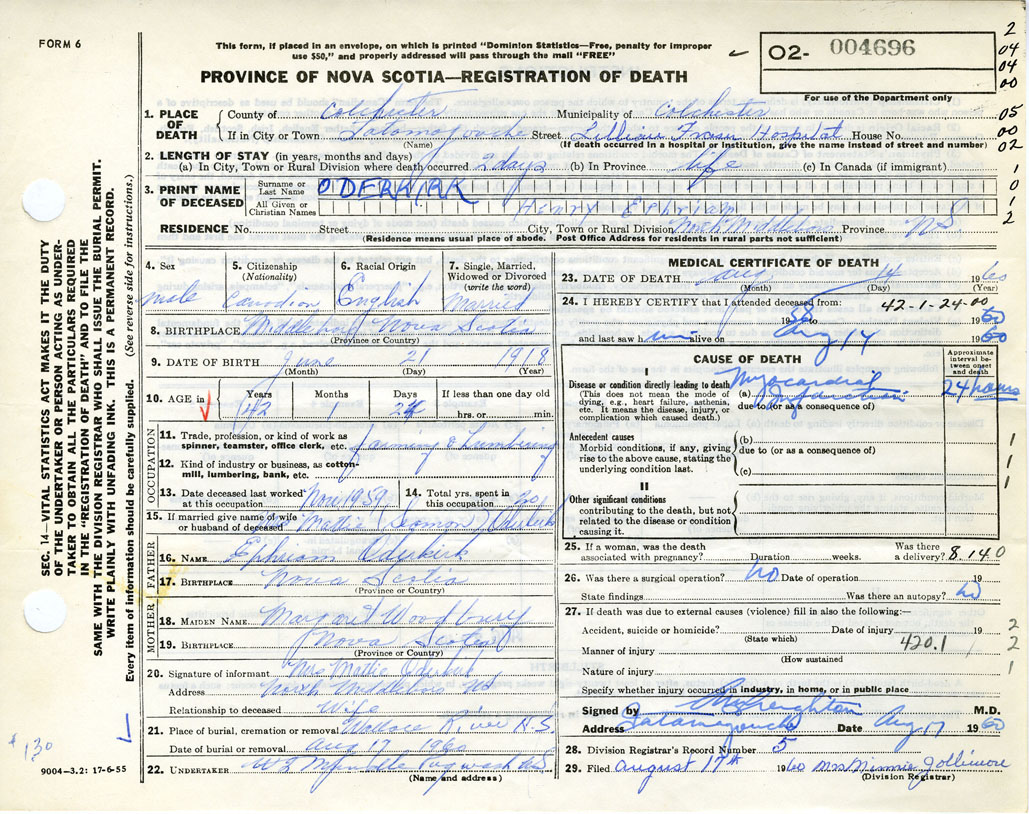 FORM 6
This form, if placed in an envelope, on which is printed "Dominion Statistics—Free, penalty for improper
use $50," and properly addressed will pass through the mail "FREE"
02- 004696
For use of the Department only
2
04
04
00
05
00
02
1
0
1
2
PROVINCE OF NOVA SCOTIA—REGISTRATION OF DEATH
SEC. 14—VITAL STATISTICS ACT MAKES IT THE DUTY
OF THE UNDERTAKER OR PERSON ACTING AS UNDER-
TAKER TO OBTAIN ALL THE PARTICULARS REQUIRED
IN THE "REGISTRATION OF DEATH" AND TO FILE THE
SAME WITH THE DIVISION REGISTRAR WHO SHALL ISSUE THE BURIAL PERMIT.
WRITE PLAINLY WITH UNFADING INK. THIS IS A PERMANENT RECORD.
Every item of information should be carefully supplied. (See reverse side for instructions.)
1. PLACE OF DEATH County of Colchester Municipality of Colchester
If in City or Town Tatamagouche Street Lillian Fraser Hospital House No.
(Name) (If death occurred in a hospital or institution, give the name instead of street and number)
2. LENGTH OF STAY (in years, months and days)
(a) In City, Town or Rural Division where death occurred 2 days (b) In Province life (c) In Canada (if immigrant)
3. PRINT NAME OF DECEASED
Surname or Last Name ODERKIRK
All Given or Christian Names Henry Ephriam
RESIDENCE No. Street City, Town or Rural Division North Middleboro Province NS
(Residence means usual place of abode. Post Office Address for residents in rural parts not sufficient)
4. Sex male
5. Citizenship (Nationality) Canadian
6. Racial Origin English
7. Single, Married, Widowed or Divorced (write the word) Married
8. BIRTHPLACE Middleboro Nova Scotia
(Province or Country)
9. DATE OF BIRTH June 21 1918
(Month) (Day) (Year)
10. AGE in Years 42 Months 1 Days 24 If less than one day old
hrs. or min.
OCCUPATION
11. Trade, profession, or kind of work as
spinner, teamster, office clerk, etc. farming & lumbering
12. Kind of industry or business, as cotton-
mill, lumbering, bank, etc.
13. Date deceased last worked at this occupation Nov 1959 14. Total yrs. spent in this occupation 20
15. If married give name of wife
or husband of deceased Mrs Mattie (Seamon) Oderkirk
FATHER
16. NAME Ephriam Oderkirk
17. BIRTHPLACE Nova Scotia
(Province or Country)
MOTHER
18. MAIDEN NAME Margaret Woodbury
19. BIRTHPLACE Nova Scotia
(Province or Country)
20. Signature of informant Mrs Mattie Oderkirk
Address North Middleboro NS
Relationship to deceased Wife
21. Place of burial, cremation or removal Wallace River N.S.
Date of burial or removal Aug 17 1960
22. UNDERTAKER Pugwash NS
(Name and address)
$130
9004-3.2: 17-6-55
MEDICAL CERTIFICATE OF DEATH
23. DATE OF DEATH Aug 14 1960
(Month) (Day) (Year)
24. I HEREBY CERTIFY that I attended deceased from: 42-1-24-00
1958 to 1960
and last saw him alive on Aug 14 1960
CAUSE OF DEATH
Approximate interval between onset and death
I
Disease or condition directly leading to death (a) Myocardial Infarction 24 hours
(This does not mean the mode of
dying, e.g., heart failure, asthenia,
etc. It means the disease, injury, or
complication which caused death.)
due to (or as a consequence of)
Antecedent causes
Morbid conditions, if any, giving
rise to the above cause, stating the
underlying condition last.
(b)
due to (or as a consequence of)
(c)
1
1
1
II
Other significant conditions
contributing to the death, but not
related to the disease or condition
causing it.
25. If a woman, was the death
associated with pregnancy? Duration weeks. Was there a delivery? 8.140
26. Was there a surgical operation? No Date of operation 19
State findings Was there an autopsy? No
27. If death was due to external causes (violence) fill in also the following:—
Accident, suicide or homicide? Date of injury 19 2
(State which)
Manner of injury 420.1 2
(How sustained)
Nature of injury 1
Specify whether injury occurred in industry, in home, or in public place
Signed by Creighton M.D.
Address Tatamagouche Date Aug 17 1960
28. Division Registrar's Record Number 5
29. Filed August 17th 1960 Mrs Minnie Jollimore
(Division Registrar)